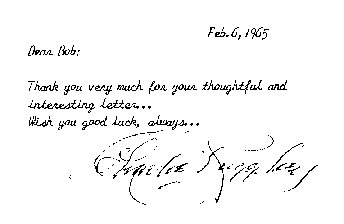 Feb. 6, 1965
Dear Bob:
Thank you very much for your thoughtful and
interesting letter...
Wish you good luck, always...
Charlie Ruggles